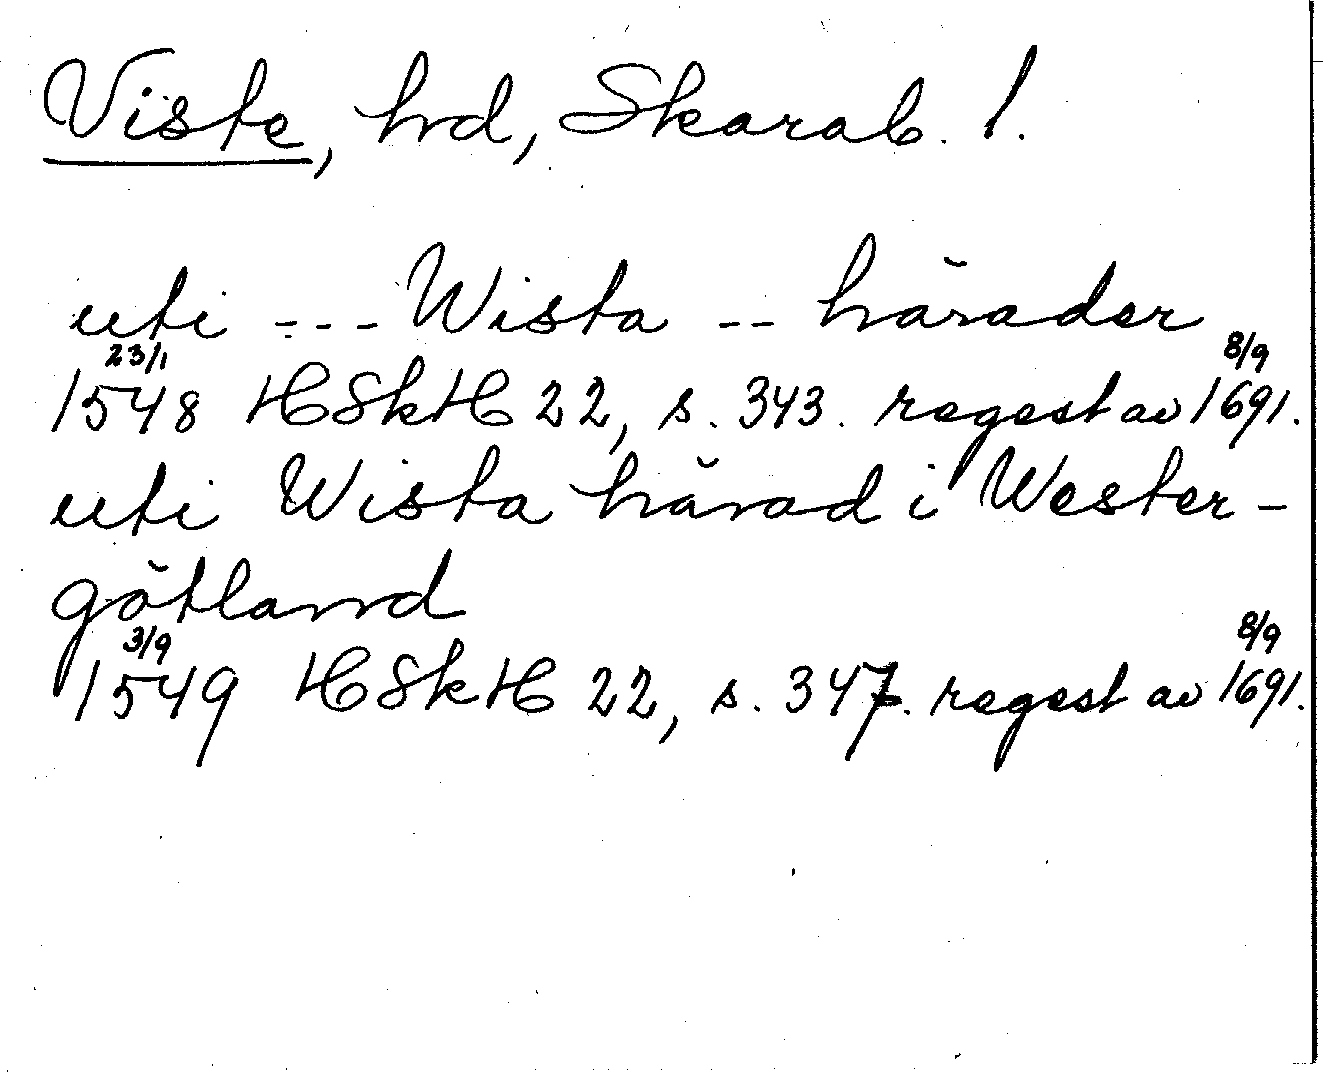 Viste, hd, Skarab. l.
uti --- Wista -- härader
23/1 8/9
1548 HSkH 22, s. 343. regest av 1691.
uti Wista härad i Wester-
götland
3/9 8/9
1549 HSkH 22, s. 347. regest av 1691.